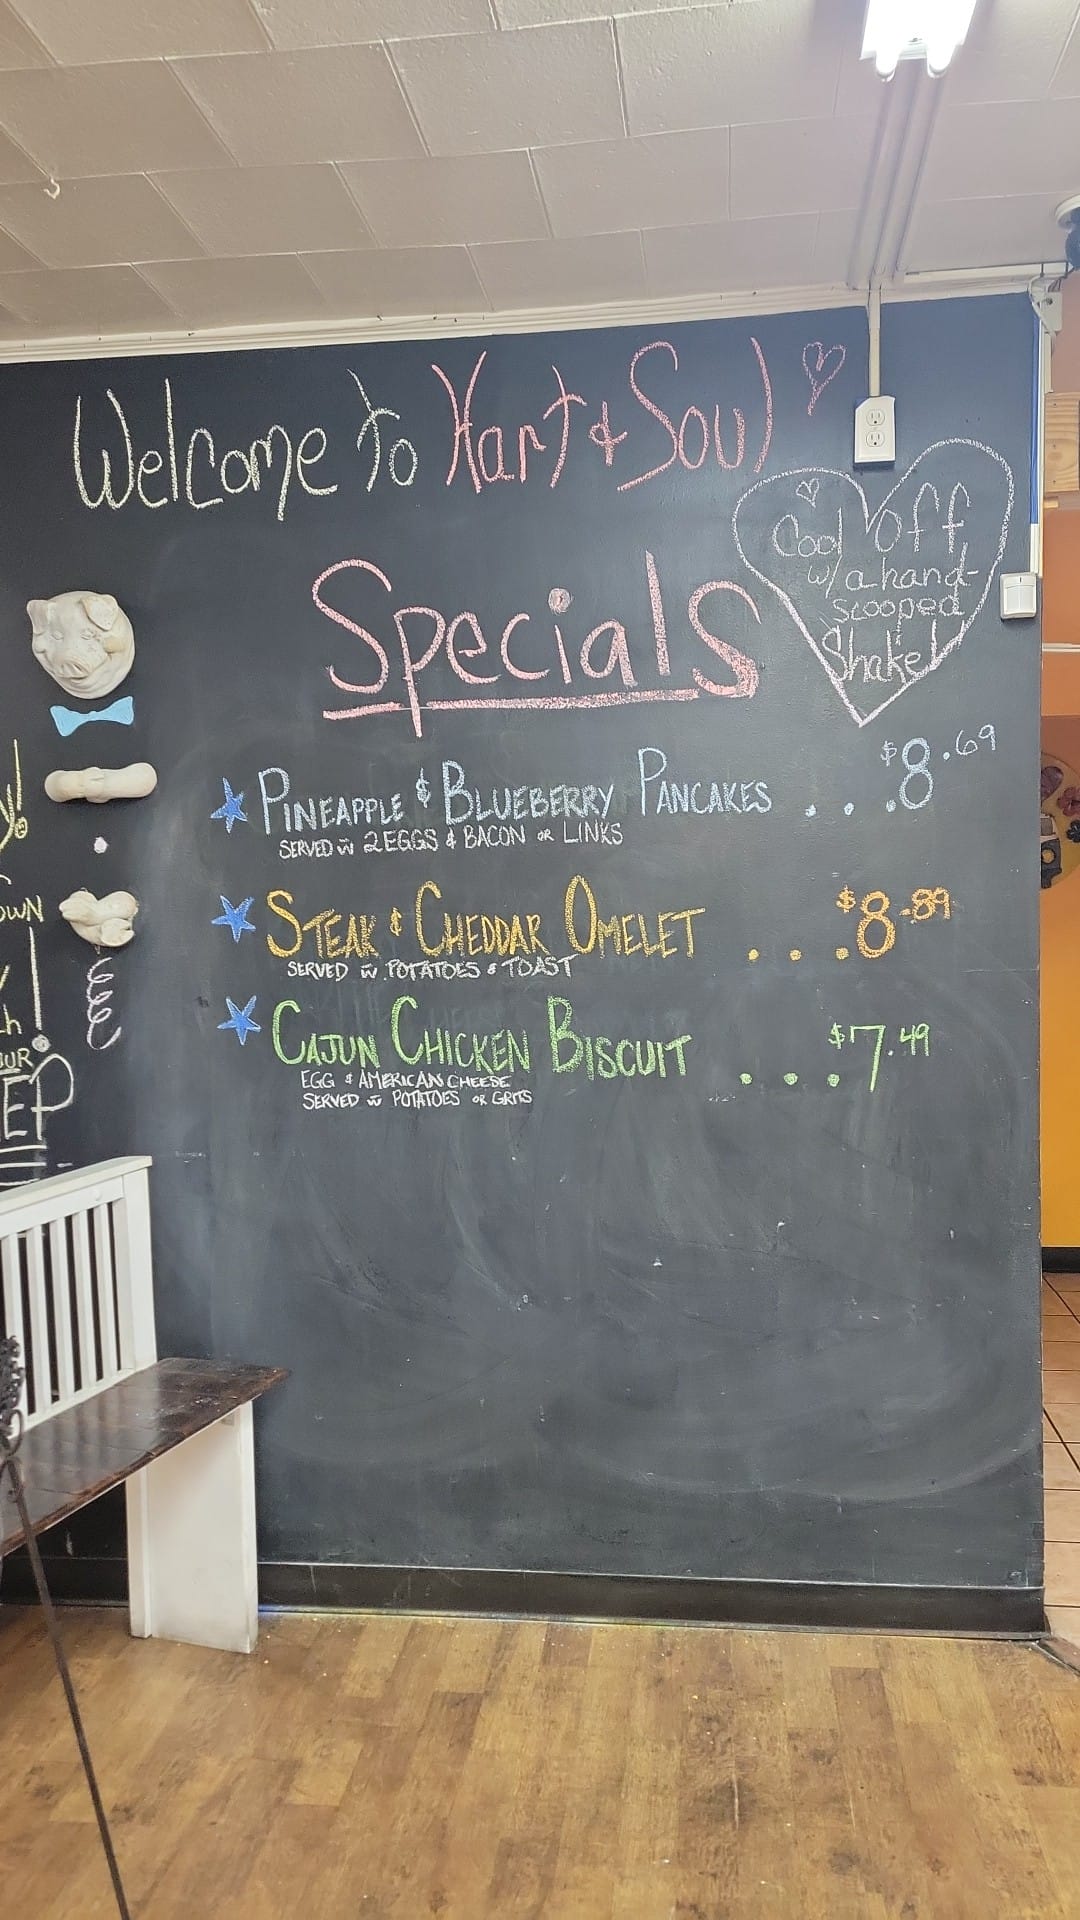 Welcome To Hart & Soul
Cool off
w/ a hand-
scooped
Shake!
Specials
Pineapple & Blueberry Pancakes . . . $8.69
Served w 2 Eggs & Bacon or Links
Steak & Cheddar Omelet . . . $8.89
Served w Potatoes & Toast
Cajun Chicken Biscuit . . . $7.49
Egg & American Cheese
Served w Potatoes or Grits